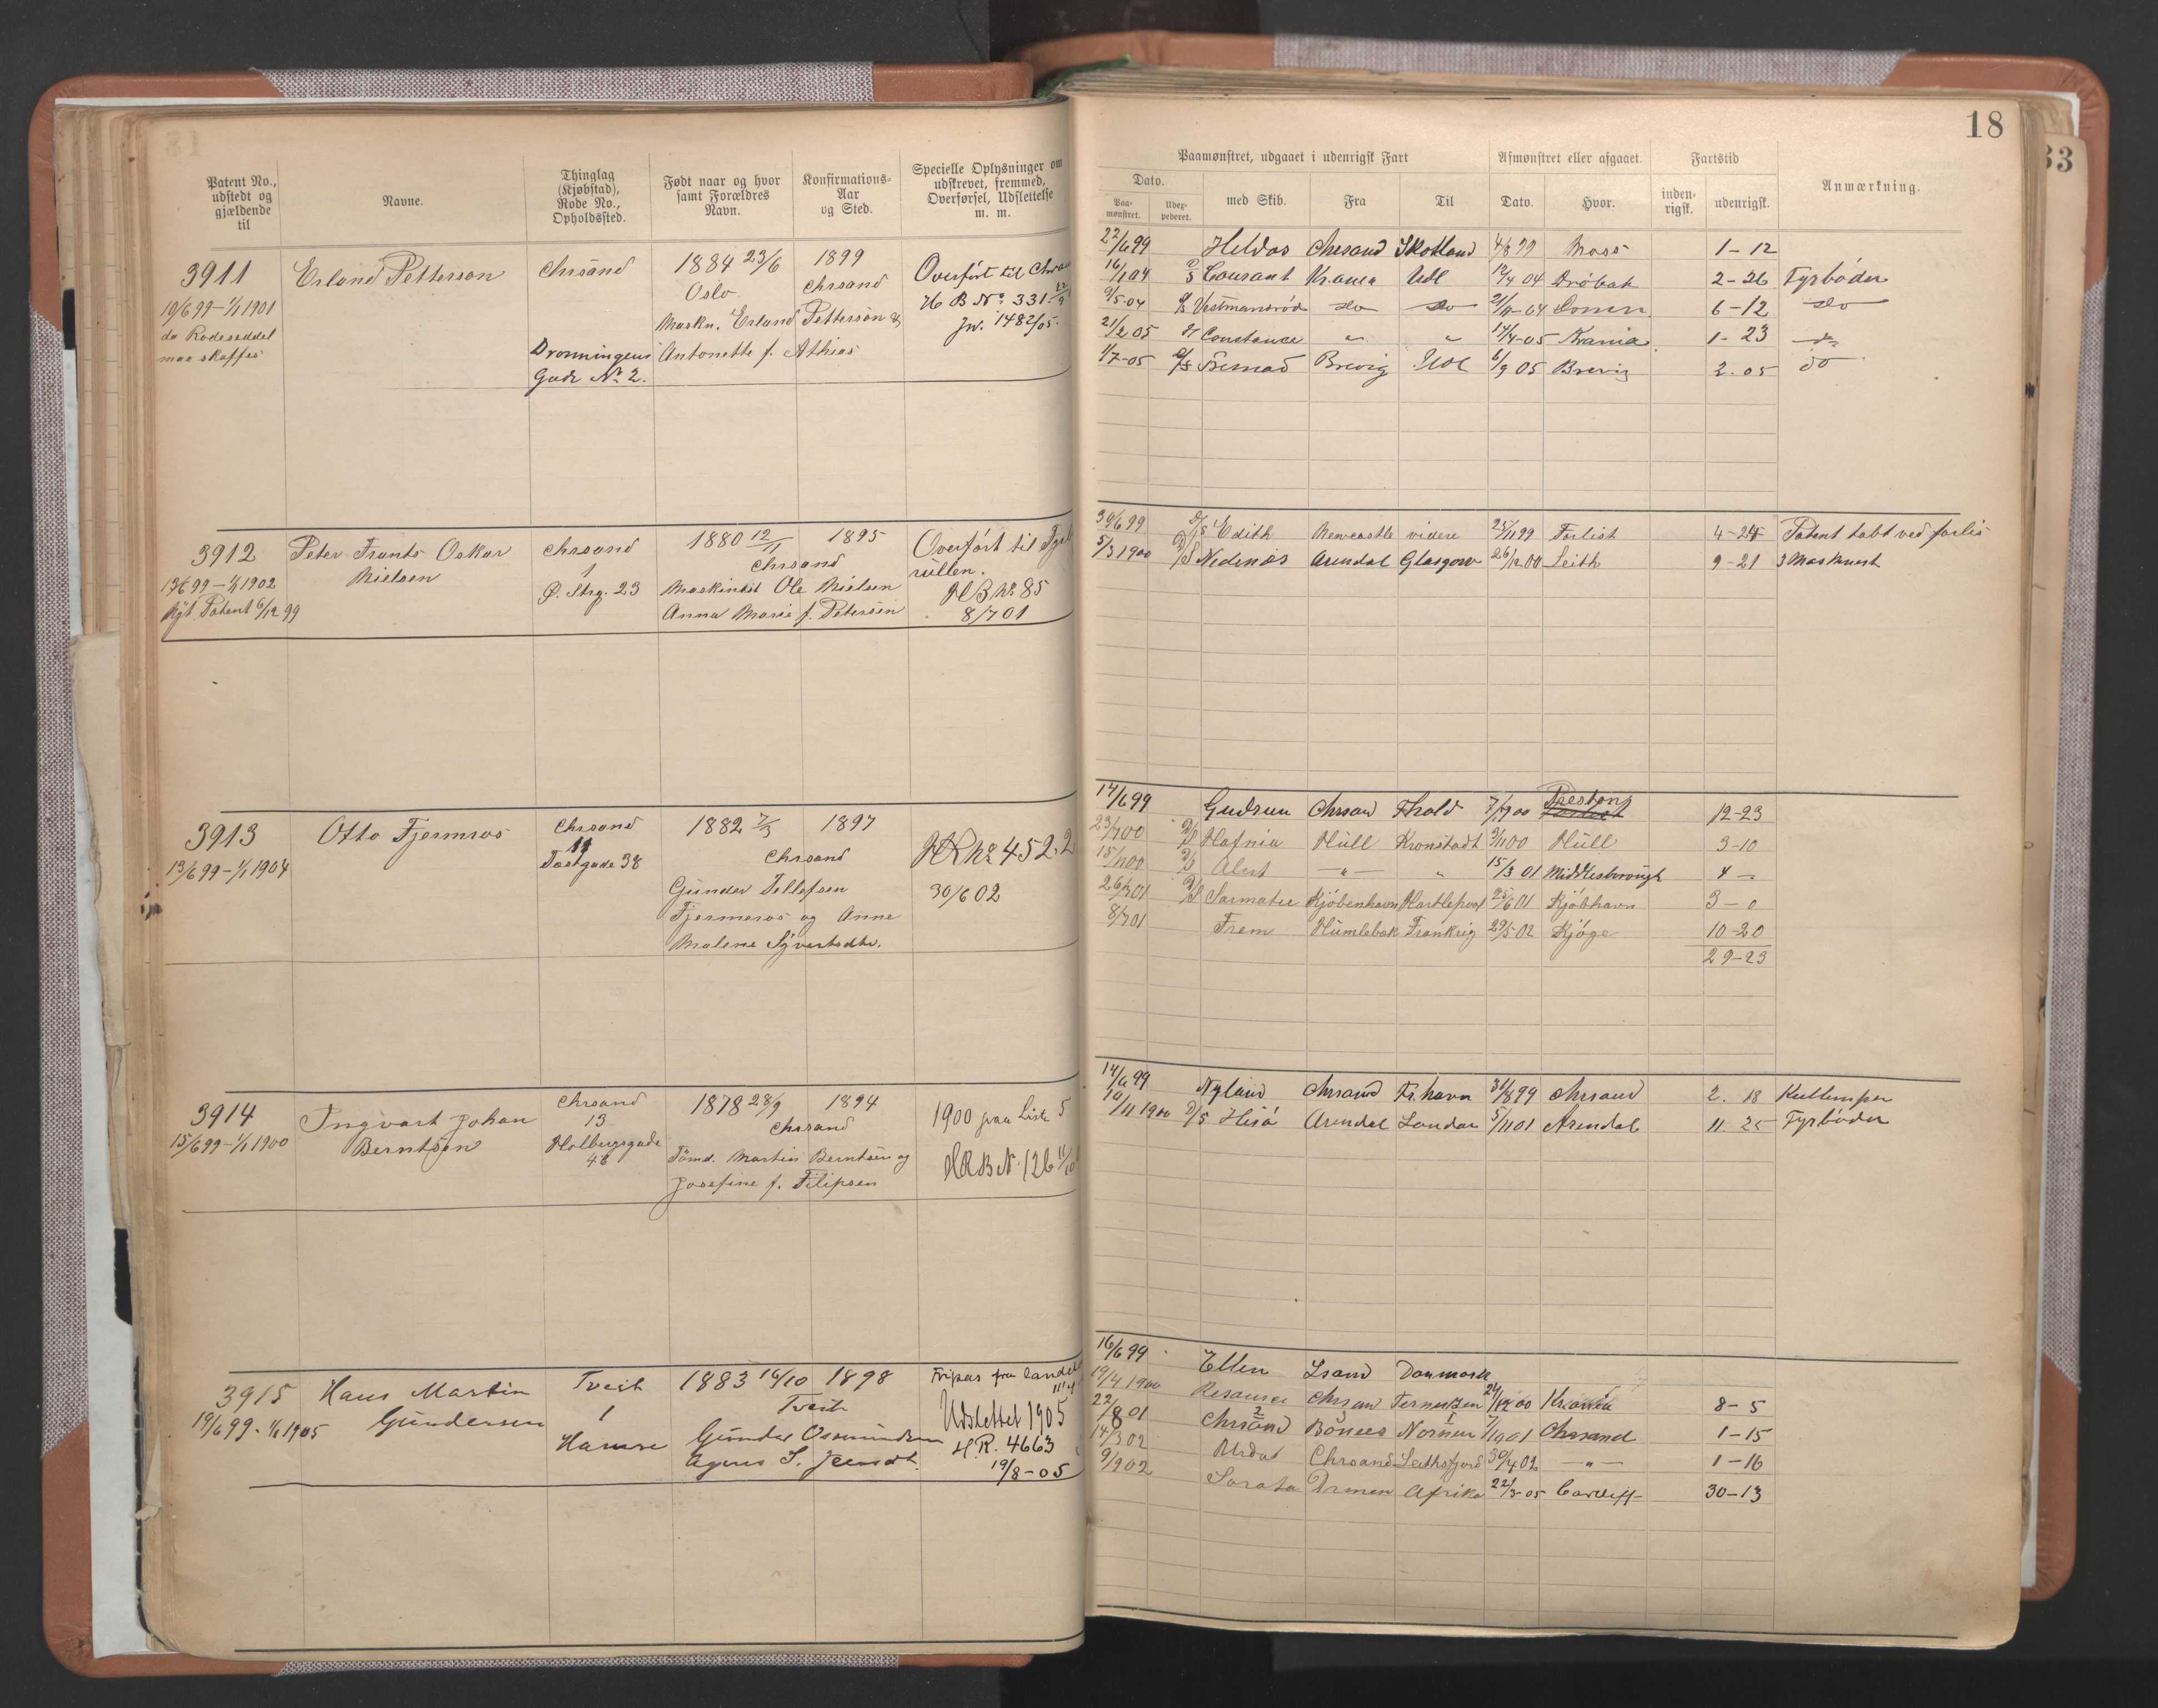 18
Patent No., udstedt og gjældende til
Navne.
Thinglag (Kjøbstad), Rode No., Opholdssted.
Født naar og hvor samt Forældres Navn.
Konfirmations-Aar og Sted.
Specielle Oplysninger om udskrevet, fremmed, Overførsel, Udslettelse m. m.
Paamønstret, udgaaet i udenrigsk Fart
Afmønstret eller afgaaet.
Fartstid
Anmærkning.
Dato.
Paa-mønstret.
med Skib.
Fra
Til
Dato.
Hvor.
inden-rigsk.
udenrigsk.
3911 Erland Petterson Chrsand 1884 23/6 1899
Oslo Chrsand
19/6 99 - 1/1 1901
da Rodeseddel
maa skaffes
Maskn. Erland Petterson &
Antonette f. Athias
Dronningens
Gade No 2.
Overført til
H B No 331
Jn. 1482/05.
22/6 99 Heldos Chrsand Skotland 4/8 99 Moss 1-12
16/1 04 D/S Courant Krania Udl 12/4 04 Drøbak 2-26 Fyrbøder
9/5-04 Vestmanrød do do 21/11-04 6-12 do
21/2 05 Constance " " 14/4-05 Krania 1-23
1/7-05 D/S Brevig Udl 6/9 05 Brevig 2-05 do
3912 Peter Frants Oskar Nielsen
13/6 99 - 1/1 1902
Nyt Patent 6/12 99
Chrsand
1
Ø. Strg. 23
1880 12/11 1895
Chrsand
Maskinist Ole Nielsen
Anna Marie f. Petersen
Overført til
rullen.
HB No 85
8/7 01
30/6 99 D/S Edith Newcastle videre 25/11 99 Forlist 4-24 Patent tabt ved forlis
5/3 1900 D/S Nedenæs Arendal Glasgow 26/12 00 Leith 9-21 3 Maskinist
3913 Otto Fjermros
13/6 99 - 1/1 1904
Chrsand
11
Tostgade 38
1882 7/3 1897
Chrsand
Gunder Tellefsen
Fjermeros og Anne
Malene Syvertsdtr.
HR No 452.2
30/6 02
14/6 99 Gudrun Chrsan Fhald 7/7 00 Preston 12-23
23/7 00 D/S Hafnia Hull Kronstadt 9/11 00 Hull 3-10
15/11 00 D/S Alert -"- " 15/3 01 Middlesbrough 4 -
26/3 01 D/S Sarmatie Kjøbenhavn Hartlepool 25/6 01 Kjøbhavn 3-0
8/7 01 Frem Humlebæk Frankrig 29/5 02 Kjøge 10-20
29-23
3914 Ingvart Johan Berntsen
15/6 99 - 1/1 1900
Chrsand
13
Holbergsgade
48
1878 28/9 1894
Chrsand
Tømd. Martin Berntsen og
Josefine f. Filipsen
1900 paa Liste 5
HRB N. 126
14/6 99 Nyland Chrsand Fr.havn 31/8 99 Chrsand 2. 18 Kullemper
10/11 1900 D/S Hisø Arendal London 5/11 01 Arendal 11. 25 Fyrbøder
3915 Hans Martin Gundersen
19/6 99 - 1/1 1905
Tveit
1
Hamre
1883 16/10 1898
Tveit
Gunder Osmundsen
Agnes S. Jensdt.
Fripas fra
Udslettet 1905
H.R. 4663
19/8-05
16/6 99 Ellen Lsand Danmark
19/4 1900 Chrsan 24/12 00 8-5
22/8 01 Chrsand Bónees Nornen 7/10 01 Chrsand 1-15
14/3 02 Chrsand 30/4 02 -"- 1-16
9/9 02 Sorata Drmen Afrika 22/3-05 Cardiff 30-13